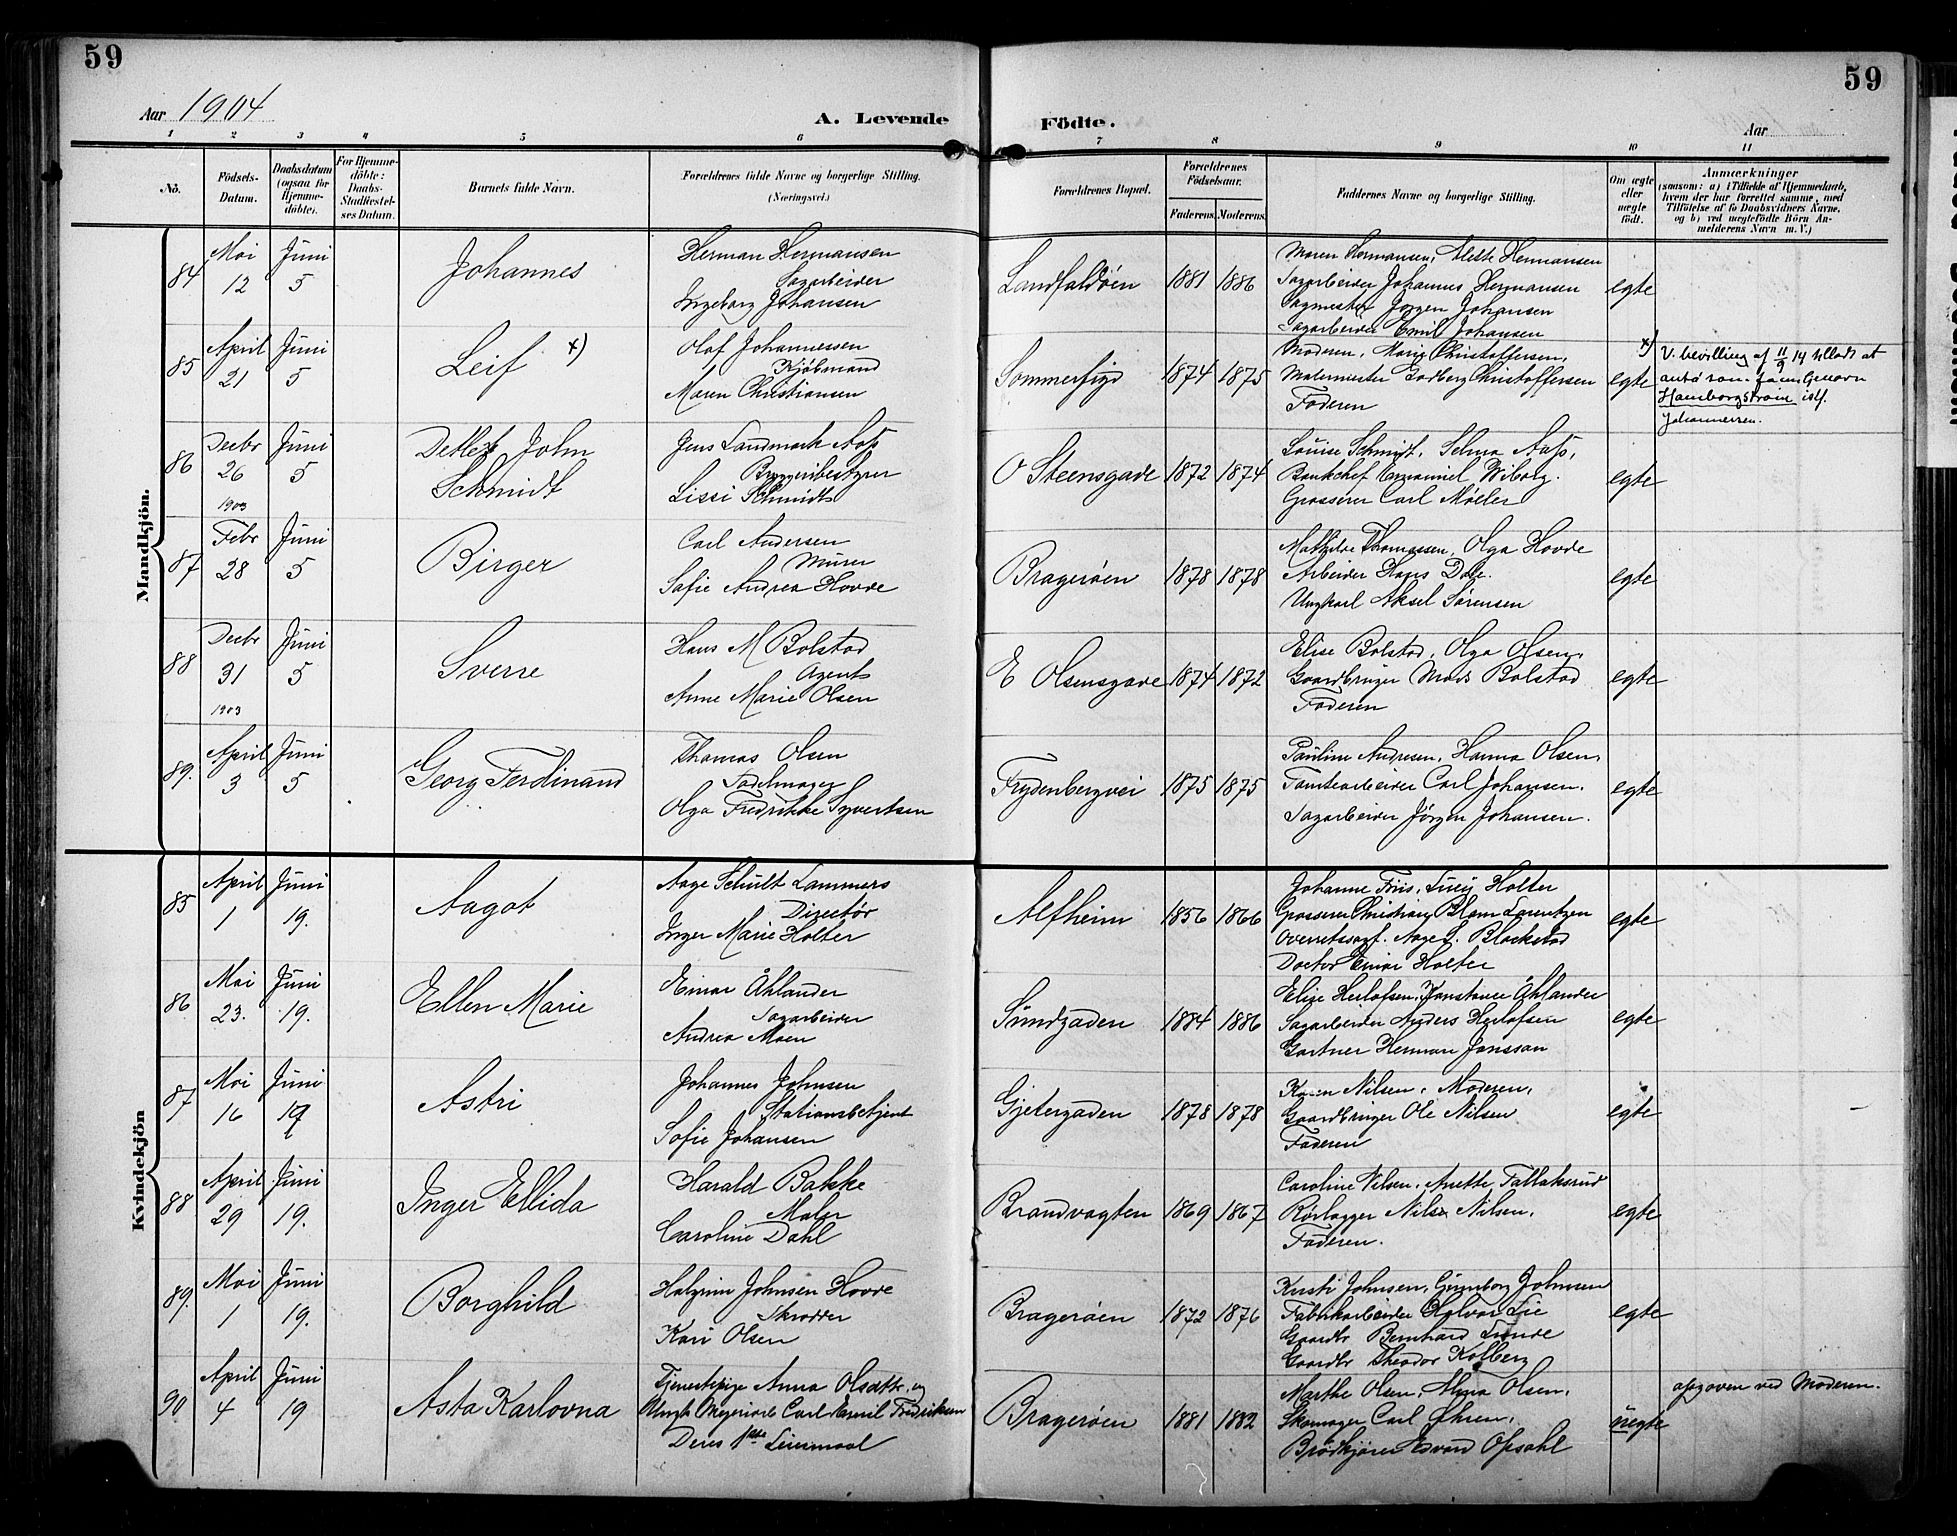 59
59
Aar 1904
A. Levende
Födte.
Aar
1 2 3 4 5 6 7 8 9 10 11
No.
Födsels-
Datum.
Daabsdatum
(ogsaa for
Hjemme-
döbte).
For Hjemme-
döbte:
Daabs-
Stadfæstel-
ses Datum.
Barnets fulde Navn.
Forældrenes fulde Navne og borgerlige Stilling.
(Næringsvei.)
Forældrenes Bopæl.
Forældrenes
Födselsaar.
Faderens. Moderens.
Faddernes Navne og borgerlige Stilling.
Om ægte
eller
uægte
födt.
Anmærkninger
(saasom: a) i Tilfælde af Hjemmedaab,
hvem der har forrettet samme, med
Tilföielse af to Daabsvidners Navne,
og b) ved uægtefödte Börn An-
melderens Navn m. V.)
Mandkjön.
84
Mai
12
Juni
5
Johannes
Herman Hermansen
Sagarbeider
Ingeborg Johansen
Landfaldöen
1881 1886
Maren Hermansen, Alette Hermansen
Sagarbeider Johannes Hermansen
Sagmester Jørgen Johansen
Sagarbeider Emil Johansen
egte
85
April
21
Juni
5
Leif x)
Olaf Johannessen
Kjøbmand
Maren Christiansen
Sommerfryd
1874 1875
Moderen, Marie Christoffersen,
Malermester Godberg Christoffersen
Faderen
egte
x) V. bevilling af 11/9 14 tilladt at
anta som familienavn
Hamborgstrøm istf.
Johannessen.
86
Decbr
26
1903
Juni
5
Detlef John
Schmidt
Jens Landmark Aass
Bryggeribestyrer
Lissi Schmidt
O Steensgade
1872 1874
Louise Schmidt, Selma Aass,
Bankchef Emanuel Wiborg.
Grosserer Carl Møller
egte
87
Febr
28
Juni
5
Birger
Carl Andersen
Murer
Sofie Andrea Hovde
Bragerøen
1878 1878
Mathilde Thomassen, Olga Hovde
Arbeider Hans Dale.
Ungkarl Aksel Sørensen
egte
88
Decbr
31
1903
Juni
5
Sverre
Hans M Bolstad
Agent
Anne Marie Olsen
E Olsensgade
1874 1872
Elise Bolstad, Olga Olsen,
Gaardbruger Mads Bolstad
Faderen
egte
89.
April
3
Juni
5
Georg Ferdinand
Thomas Olsen
Sadelmager
Olga Fredrikke Syvertsen
Frydenbergvei
1875 1875
Pauline Andresen, Hanna Olsen,
Tomtearbeider Carl Johansen.
Sagarbeider Jörgen Johansen.
egte
Kvindekjön
85
April
1
Juni
19.
Aagot
Aage Schult Lammers
Direktør
Inger Marie Holter
Alfheim
1856 1866
Johanne Friis, Lucy Holter
Grosserer Christian Blom Lorentzen
Overretssagf. Aage S. Blackstad
Doctor Einar Holter
egte
86
Mai
23.
Juni
19.
Ellen Marie
Einar Åhlander
Sagarbeider
Andrea Moen
Sundgaden
1884 1886
Elise Herlofsen, Konstance Åhlander
Sagarbeider Anders Herlofsen
Gartner Herman Jonsson
egte
87
Mai
16
Juni
19
Astri
Johannes Johnsen
Stationsbetjent
Sofie Johansen
Gjetergaden
1878 1878
Karen Nilsen, Moderen,
Gaardbruger Ole Nilsen
Faderen
egte
88
April
29
Juni
19.
Inger Ellida
Harald Bakke
Maler
Caroline Dahl
Brandvagten
1869 1867
Caroline Nilsen, Anette Fallaksrud
Rørlægger Nils Nilsen.
Faderen.
egte
89.
Mai
1
Juni
19.
Borghild
Halgrim Johnsen Hovde
Skrædder
Kari Olsen
Bragerøen
1872 1876
Kristi Johnsen, Gunnborg Johnsen
Fabrikarbeider Halvor Lie
Gaardbr Bernhard Lunde
Gaardbr Theodor Kolberg
egte
90
April
4
Juni
19
Asta Karlovna
Tjenestepige Anna Olsdttr. og
Ungk Carl Emil Fredriksen
Deres 1ste Leiermaal
Bragerøen
1881 1882
Marthe Olsen, Alma Olsen,
Skomager Carl Øhren,
Brødkjører Edvard Opsahl
uegte
opgaven ved Moderen.